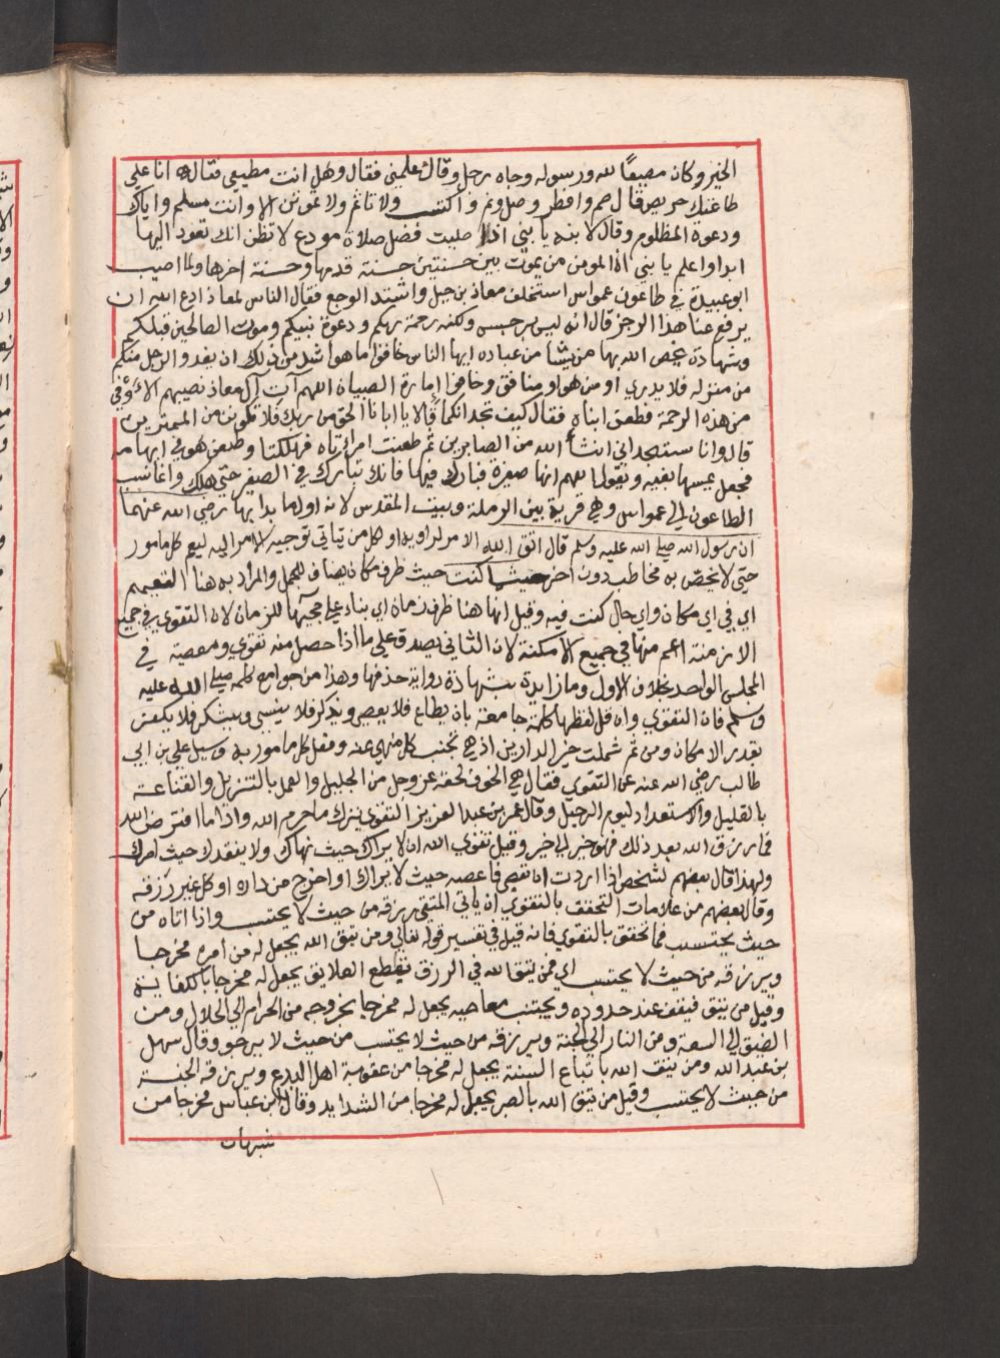 الخير وكان مطيعًا لله ورسوله وجاه رجل وقال علمني فقال وهل انت مطيعي فقال انا على
طاعتك حريص قال صم وافطر وصل ونم واكتسب ولا تاثم ولا تموتن الا وانت مسلم واياك
ودعوة المظلوم وقال لابنه يا بني اذا صليت فصل صلاة مودع لا تظن انك تعود اليها
ابدا واعلم يا بني ان المومن من يموت بين حسنتين حسنة قدمها وحسنة اخرها ولما اصيب
ابو عبيدة في طاعون عمواس استخلف معاذ بن جبل واشتد الوجع فقال الناس لمعاذ ادع الله ان
يرفع عنا هذا الرجز قال انه ليس برجس ولكنه رحمة ربكم ودعوة نبيكم وموت الصالحين قبلكم
وشهادة يخص الله بها من يشا من عباده ايها الناس خافوا ما هو اشد من ذلك ان يغدو الرجل منكم
من منزله فلا يدري او من هو او منافق وخافوا امارة الصبيان اللهم آت آل معاذ نصيبهم الاوفى
من هذه الرحمة فطعن ابناه فقال كيف تجدانكما قالا يا ابانا الحق من ربك فلا تكونن من الممترين
قال وانا ستجداني انشا الله من الصابرين ثم طعنت امراتاه فهلكتا وطعن هو في ابهامه
فجعل يمسها بفيه ويقول اللهم انها صغيرة فبارك فيها فانك تبارك في الصغير حتى هلك وانما نسب
الطاعون الى عمواس وهي قرية بين الرملة وبيت المقدس لانه اول ما بدا بها رضي الله عنهما
ان رسول الله صلى الله عليه وسلم قال اتق الله الامر لراويه او كل من يتاتى توجيه الامر اليه ليعم كل مامور
حتى لا يختص به مخاطب دون اخر حيثما كنت حيث ظرف مكان يضاف للجمل والمراد به هنا التعميم
اي في اي مكان واي حال كنت فيه وقيل انها هنا ظرف زمان اي بناء على مجيئها للزمان لان التقوى في جميع
الازمنة اعم منها في جميع الامكنة لان الثاني يصدق على ما اذا حصل منه تقوى ومعصية في
المجلس الواحد بخلاف الاول وما زايدة بشهادة رواية حذفها وهذا من جوامع كلمه صلى الله عليه
وسلم فان التقوى وان قل لفظها كلمة جامعة بان يطاع فلا يعصى ويذكر فلا ينسى ويشكر فلا يكفر
بقدر الامكان ومن ثم شملت خير الدارين اذ هي تجنب كل منهي عنه وفعل كل مامور به وسيل علي بن ابي
طالب رضي الله عنه عن التقوى فقال هي الخوف من الجليل والعمل بالتنزيل والقناعة
بالقليل والاستعداد ليوم الرحيل وقال عمر بن عبد العزيز التقوى ترك ما حرم الله واذا ما افترض الله
فما رزق الله بعد ذلك فهو خير الى خير وقيل تقوى الله ان لا يراك حيث نهاك ولا يفقدك حيث امرك
ولهذا قال بعضهم لشخص اذا اردت ان تعصي فاعصه حيث لا يراك او اخرج من داره او كل غير رزقه
وقال بعضهم من علامات التحقق بالتقوى ان ياتي المتقي رزقه من حيث لا يحتسب واذا اتاه من
حيث يحتسب فما تحقق بالتقوى فانه قيل في تفسير قوله تعالى ومن يتق الله يجعل له من امره مخرجا
ويرزقه من حيث لا يحتسب اي من يتق الله في الرزق بقطع العلايق يجعل له مخرجا بالكفاية
وقيل من يتق فيقف عند حدوده ويجتنب معاصيه يجعل له مخرجا يخرجه من الحرام الى الحلال ومن
الضيق الى السعة ومن النار الى الجنة ويرزقه من حيث لا يحتسب من حيث لا يرجو وقال سهل
بن عبد الله ومن يتق الله باتباع السنة يجعل له مخرجا من عقوبة اهل البدع ويرزقه الجنة
من حيث لا يحتسب وقيل من يتق الله بالصبر يجعل له مخرجا من الشدايد وقال ابن عباس مخرجا من
شبهات